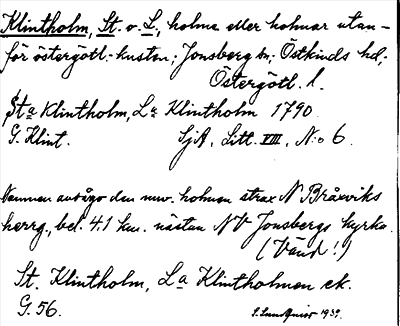 Klintholm, St. o. L., holme eller holmar utan-
för östergötl. kusten; Jonsberg sn, Östkinds hd,
Östergötl. l.
Sta Klintholm, La Klintholm 1790
G. Klint. SjA, Litt. VIII, No 6.
Namnen avse den nuv. holmen strax N Bråviks
herrg., bel. 4.1 km. nästan NV Jonsbergs kyrka.
(Vänd!)
St. Klintholm, La Klintholmen ek.
G. 56. 1939.